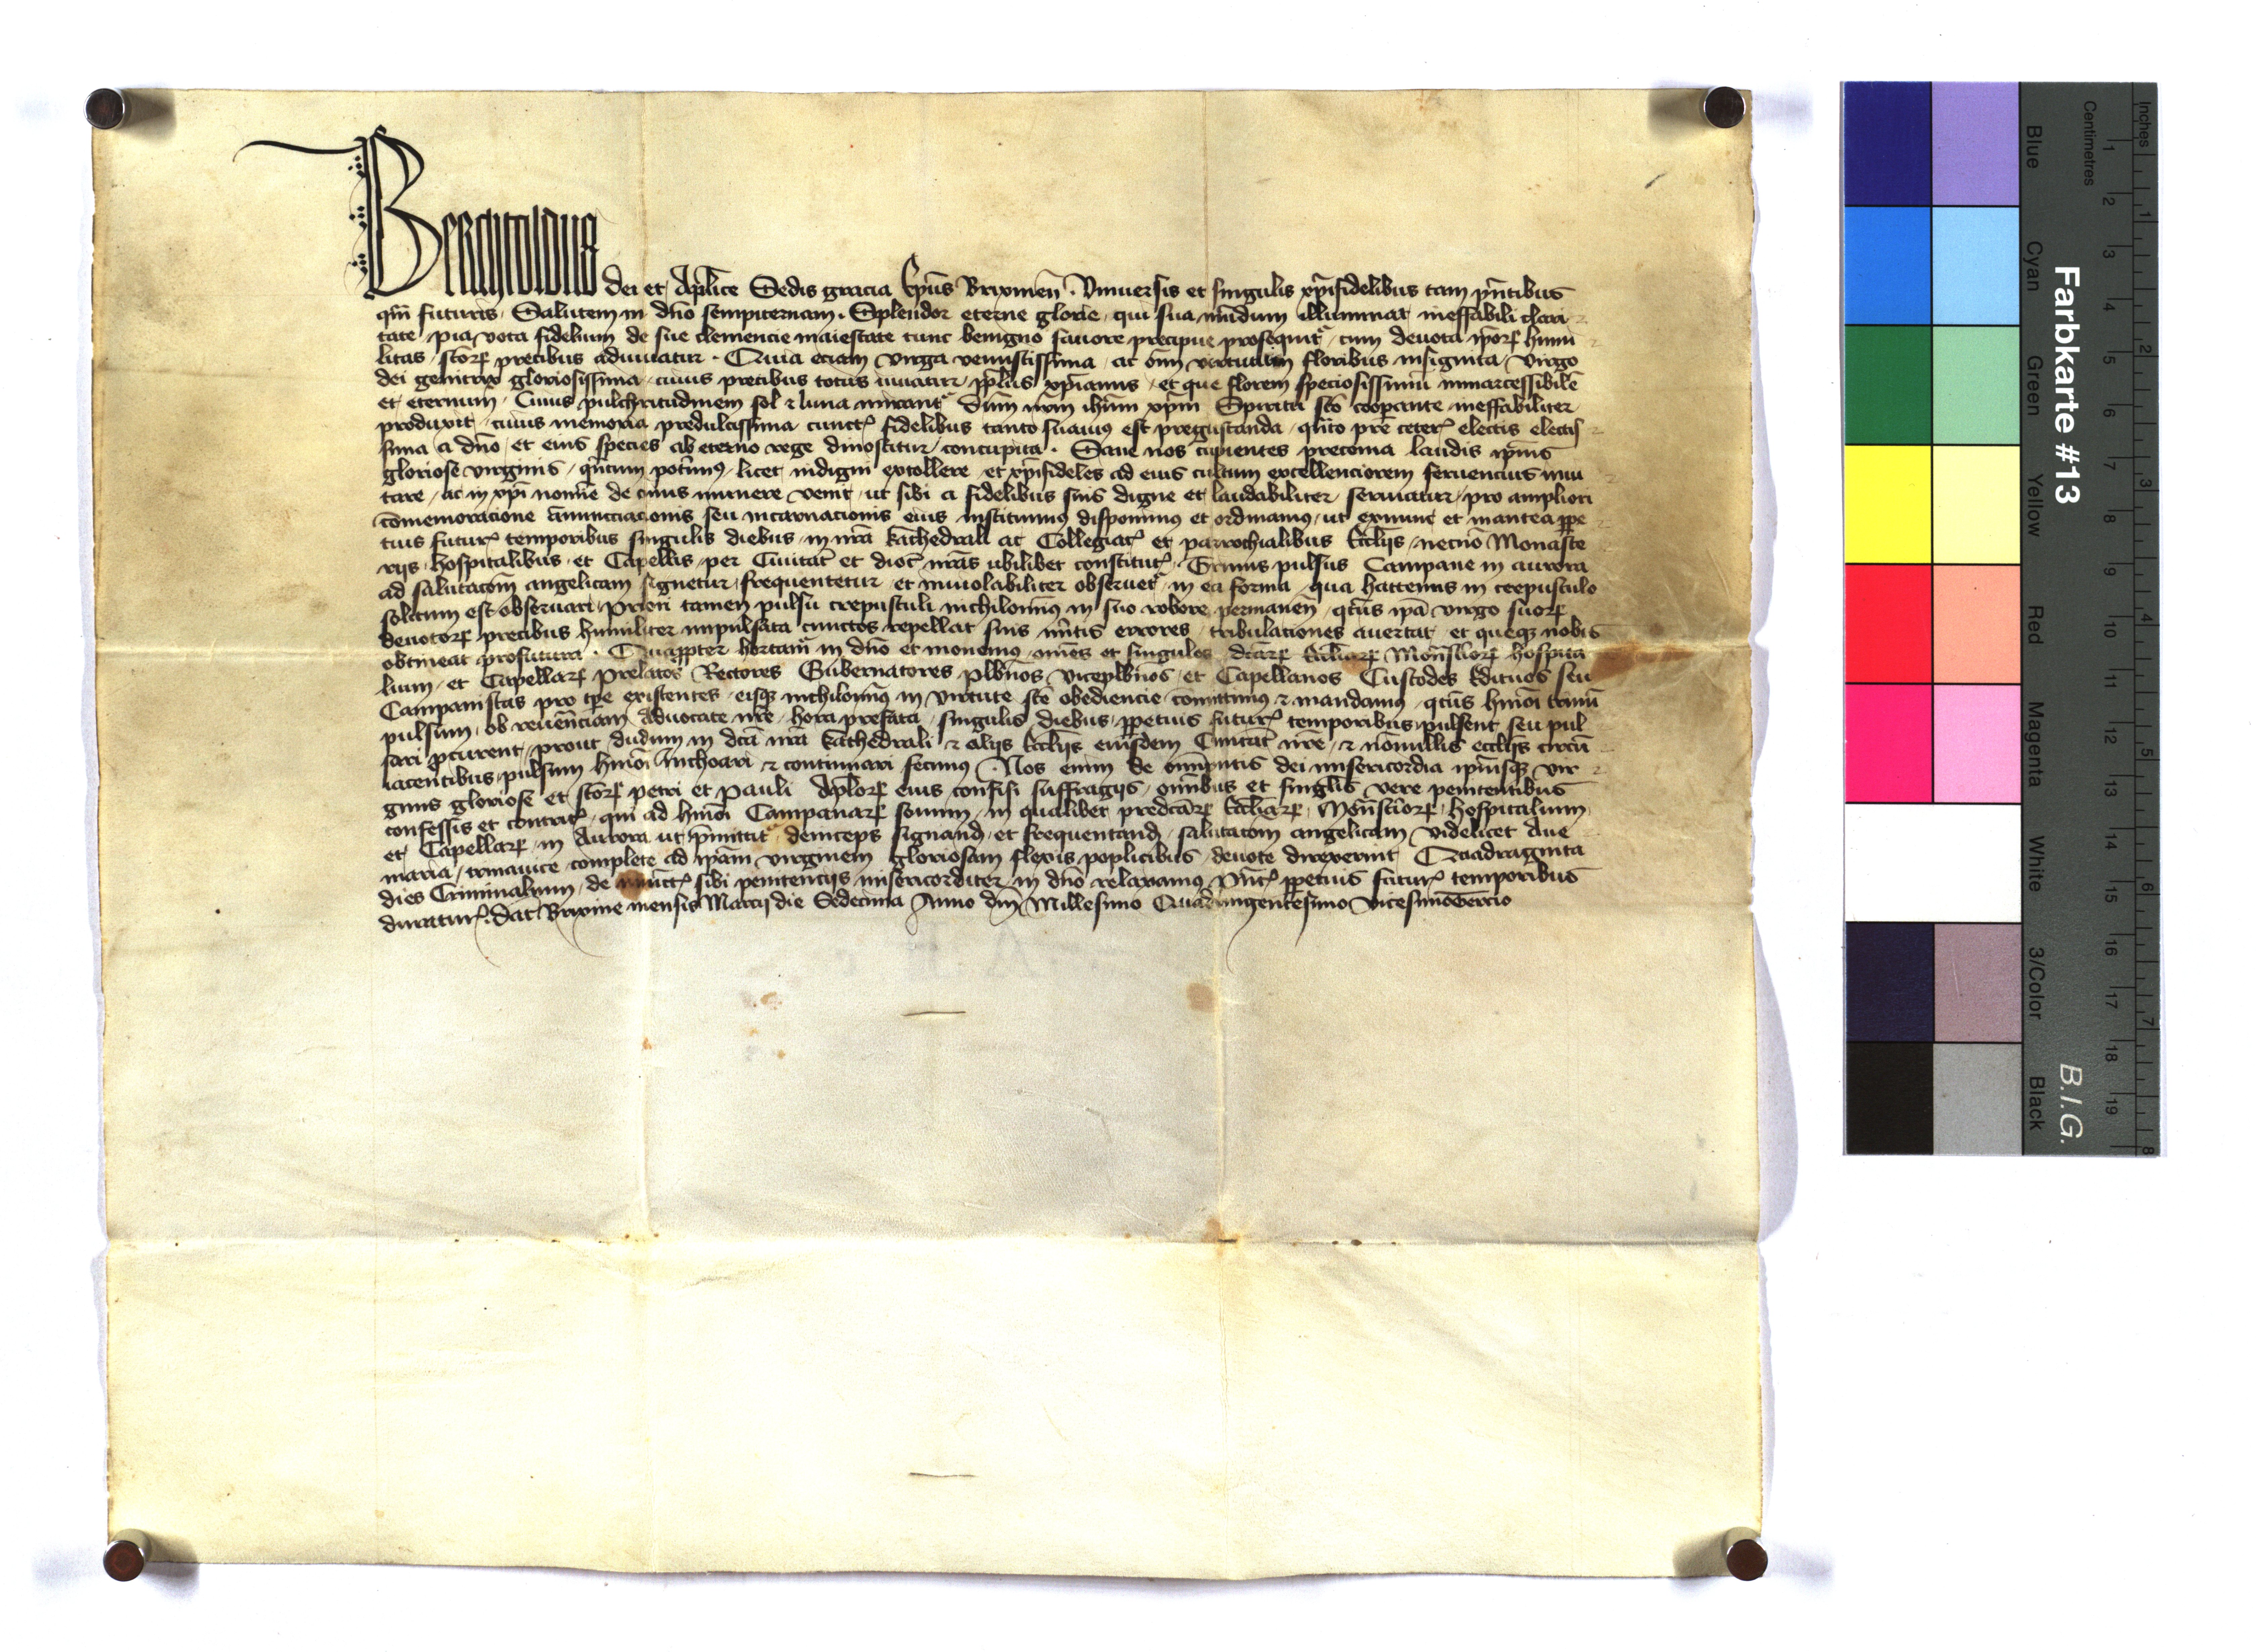 Berchtoldus dei et Aplice Sedis gracia Ep̄us Brixineñ. Vniuersis et singulis xp̄ifidelibus tam pn̄tibus
qm̄ futuris. Salutem in dn̄o sempiternam. Splendor eterne glorie, qui sua mūdum illuminat ineffabili clari
tate, pia vota fidelium de sue clemencie maiestate tunc benigno fauore precipue prosequit᷑, cum deuota ip̄oꝝ humi
litas, scōꝝ precibus adiuuatur. Quia eciam virga venustissima, ac om̄i virtutum floribus insignita, virgo
dei genitrix gloriosissima, cuius precibus totus iuuatur, pp̄lus xp̄ianus, et que florem speciosissimū inmarcessibilē
et eternum, Cuius pulchritudinem sol ⁊ luna mirant᷑ dn̄m nr̄m ihūm xp̄m Spiritu scō cooperante ineffabiliter
produxit, cuius memoria predulcissima cunctꝭ fidelibus tanto suauius est pregustanda, qn̄to pre ceterꝭ electis electis
sima a dn̄o, et eius species ab eterno rege dinoscitur, concupita. Sane nos cupientes preconia laudis ip̄ius
gloriose virginis, qn̄tum potimꝰ, licet indigni extollere, et xp̄ifideles ad eius cultum excellenciorem feruencius inui
tare, ac in xp̄i nomīe de cuius munere venit, ut sibi a fidelibus suis digne et laudabiliter seruiatur, pro ampliori
cōmemoracione Annunciacionis seu incarnacionis eius instituimꝰ disponimꝰ et ordinamꝰ, ut exnunc et inantea ꝑpe
tuis futurꝭ temporibus singulis diebus, in nr̄a kathedrali ac Collegiatꝭ et parrochialibus Eccliis, necnō Monaste
rijs, hospitalibus, et Capellis, per Ciuitat̄ et dioc̄ nr̄as ubilibet constitutꝭ, Trinus pulsus Campane in aurora
ad salutacōm angelicam signetur, frequentetur, et inuiolabiliter obseruet᷑, in ea forma, qua hactenus in crepusculo
solitum est obseruari, Priori tamen pulsu crepusculi nichilomīꝰ in suo robore permaneñ, qtūs ip̄a virgo suoꝝ
deuotoꝝ precibus humiliter inpulsata cunctos repellat suis mītis errores, tribulaciones auertat, et queqꝫ nobis
obtineat profutura. Quapp̄ter hortam᷑ in dn̄o et monemꝰ, om̄es et singulos dc̄aꝝ Eccliaꝝ Monst̄ioꝝ hospita
lium, et Capellaꝝ Prelatos Rectores Gubernatores plbn̄os viceplbn̄os, et Capellanos Custodes Edituos seu
Campanistas pro tp̄e existentes, eisqꝫ nichilomīꝰ in virtute scē obediencie, cōmittimꝰ ⁊ mandamꝰ, qtūs hmōi trinū
pulsum, ob reuēnciam Aduocate nr̄e, hora prefata, singulis diebus, ꝑpetuis futurꝭ temporibus, pulsent, seu pul
sari ꝓcurent, prout dudum in dc̄a nr̄a kathedrali ⁊ alijs Eccliis eiusdem Ciuitat̄ nr̄e, ⁊ nōnullis eccliis circū
iacentibus, pulsum hmōi Inchoari ⁊ continuari fecimꝰ. Nos enim de om̄iptis dei misericordia ip̄iusqꝫ vir
ginis gloriose et scōꝝ petri et Pauli Aplōꝝ eius confisi suffragijs, om̄ibus et singlis vere penitentibus
confessis et contritꝭ, qui ad hmōi Campanaꝝ sonum, in qualibet predc̄aꝝ Eccliaꝝ, Monst̄ioꝝ, hospitalium
et Capellaꝝ, in Aurora, ut p̄mittit᷑ deinceps signand̄, et frequentand̄, salutacōm angelicam, videlicet Aue
maria, trinauice complete ad ip̄am virginem gloriosam flexis poplicibus, deuote direxerint Quadraginta
dies Criminalium, de iniunctꝭ sibi penitencijs misericorditer in dn̄o relaxamꝰ pn̄tꝭ ꝑpetuis futurꝭ temporibus
duraturꝭ. Dat̄ Brixine mensis Marcij die Sedecima Anno dn̄i Millesimo Quadringentesimo vicesimotercio
Farbkarte #13
B.I.G.
Inches
Centimetres
1 2 3 4 5 6 7 8 9 10 11 12 13 14 15 16 17 18 19
1 2 3 4 5 6 7 8
Blue
Cyan
Green
Yellow
Red
Magenta
White
3/Color
Black